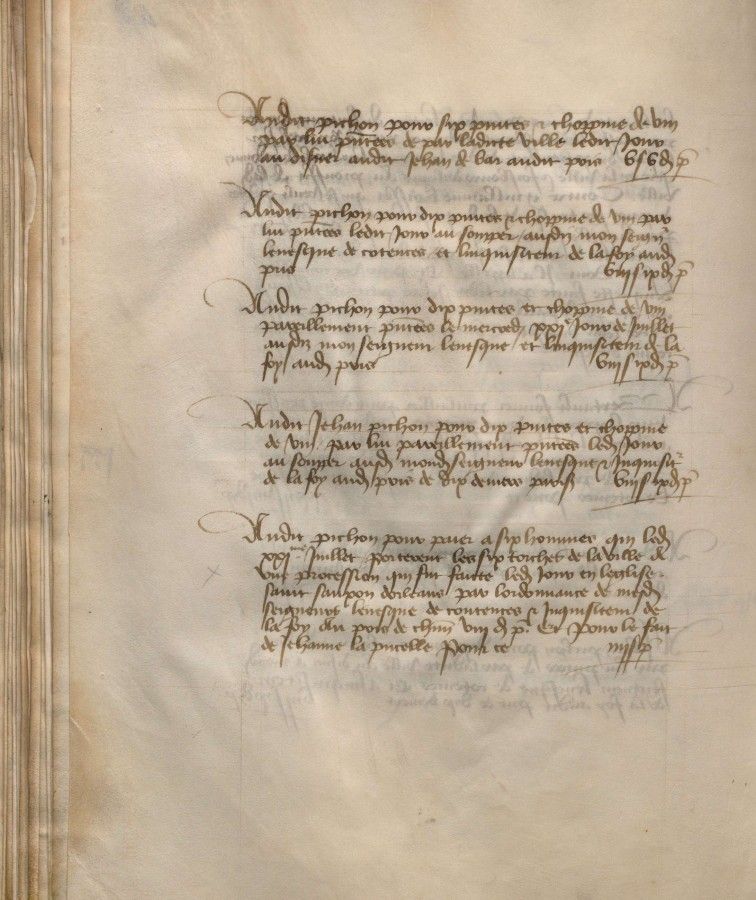 Audit pichon pour six pintes & choppine de vin
par lui pñtees de par ladicte ville ledit Jour
au disner audit Jehan de bar audit pris vs vd p
Audit pichon pour dix pintes & choppine de vin par
lui pñtees ledit Jour au soupper ausdiz mon seigr
levesque de cotences et linquisiteur de la foy aud
pris viijs ixd p
Audit pichon pour dix pintes et choppine de vin
pareillement pñtees le mercredi xxi Jour de Juillet
ausdiz mon seigneur levesque et linquisiteur de la
foy aud pris viijs ixd p
Audit Jehan pichon pour dix pintes et choppine
de vin par lui pareillement pñtees led Jour
au soupper ausd mond seigneur levesque & Inquisit
de la foy aud pris de dix deniers parisis viijs ixd p
Audit pichon pour paier a six hommes qui led
xxi Juillet porterent les six torches de la ville a
une procession qui fut faicte led Jour en leglise
saint sanxon dorleans par lordonnance de mesd
seigneurs levesque de coutences & Inquisiteur de
la foy au pris de chün viii d p. Et pour le fait
de Jehanne la pucelle Pour ce iiijs p